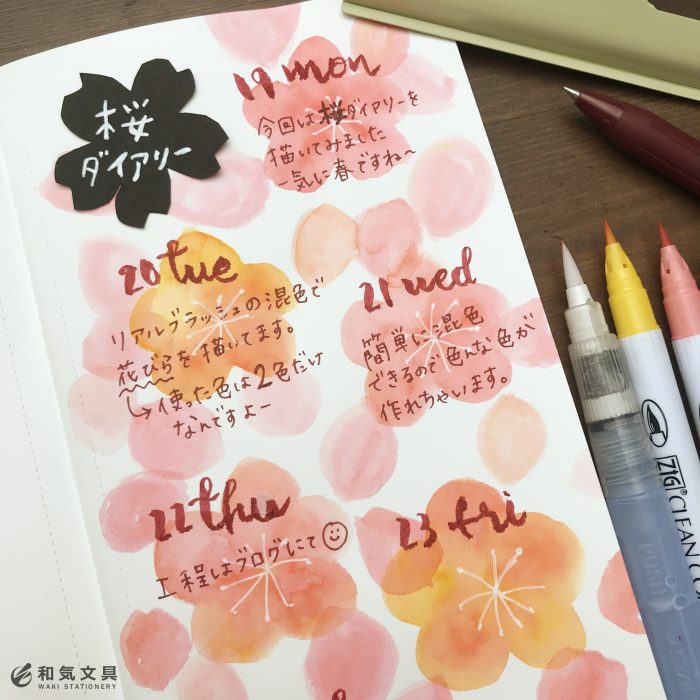 桜
ダイアリー
19 mon
今回は桜ダイアリーを
描いてみました
一気に春ですね〜
20 tue
リアルブラッシュの混色で
花びらを描いてます。
↳使った色は2色だけ
なんですよー
21 wed
簡単に混色
できるので色んな色が
作れちゃいます。
22 thu
工程はブログにて☺
23 fri
ZIG CLEAN CO
和気文具
WAKI STATIONERY